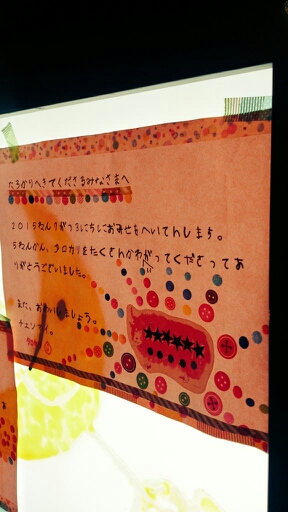 たろかりへきてくださるみなさまへ
2015ねん9がつ3にちにおみせをへいてんします。
5ねんかん、タロカリをたくさんかわがってくださってあ
りがとうございました。
また、おあいしましょう。
ナエンより。